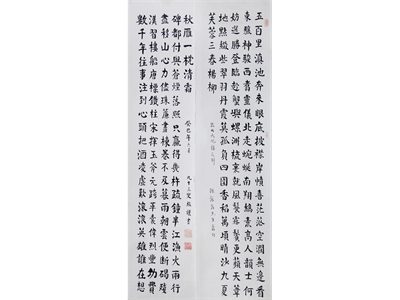 五百里滇池奔來眼底披襟岸幘喜茫茫空闊無邊看
東驤神駿西翥靈儀北走蜿蜒南翔縞素高人韻士何
妨選勝登臨趁蟹嶼螺洲梳裹就風鬟霧鬢更蘋天葦
地點綴些翠羽丹霞莫孤負四圍香稻萬頃晴沙九夏
芙蓉三春楊柳
數千年往事注到心頭把酒凌虛歎滾滾英雄誰在想
漢習樓船唐標鐵柱宋揮玉斧元跨革囊偉烈豐功費
盡移山心力儘珠簾畫棟卷不及暮雨朝雲便斷碣殘
碑都付與蒼煙落照只贏得幾杵疏鐘半江漁火兩行
秋雁一枕清霜
癸巳年